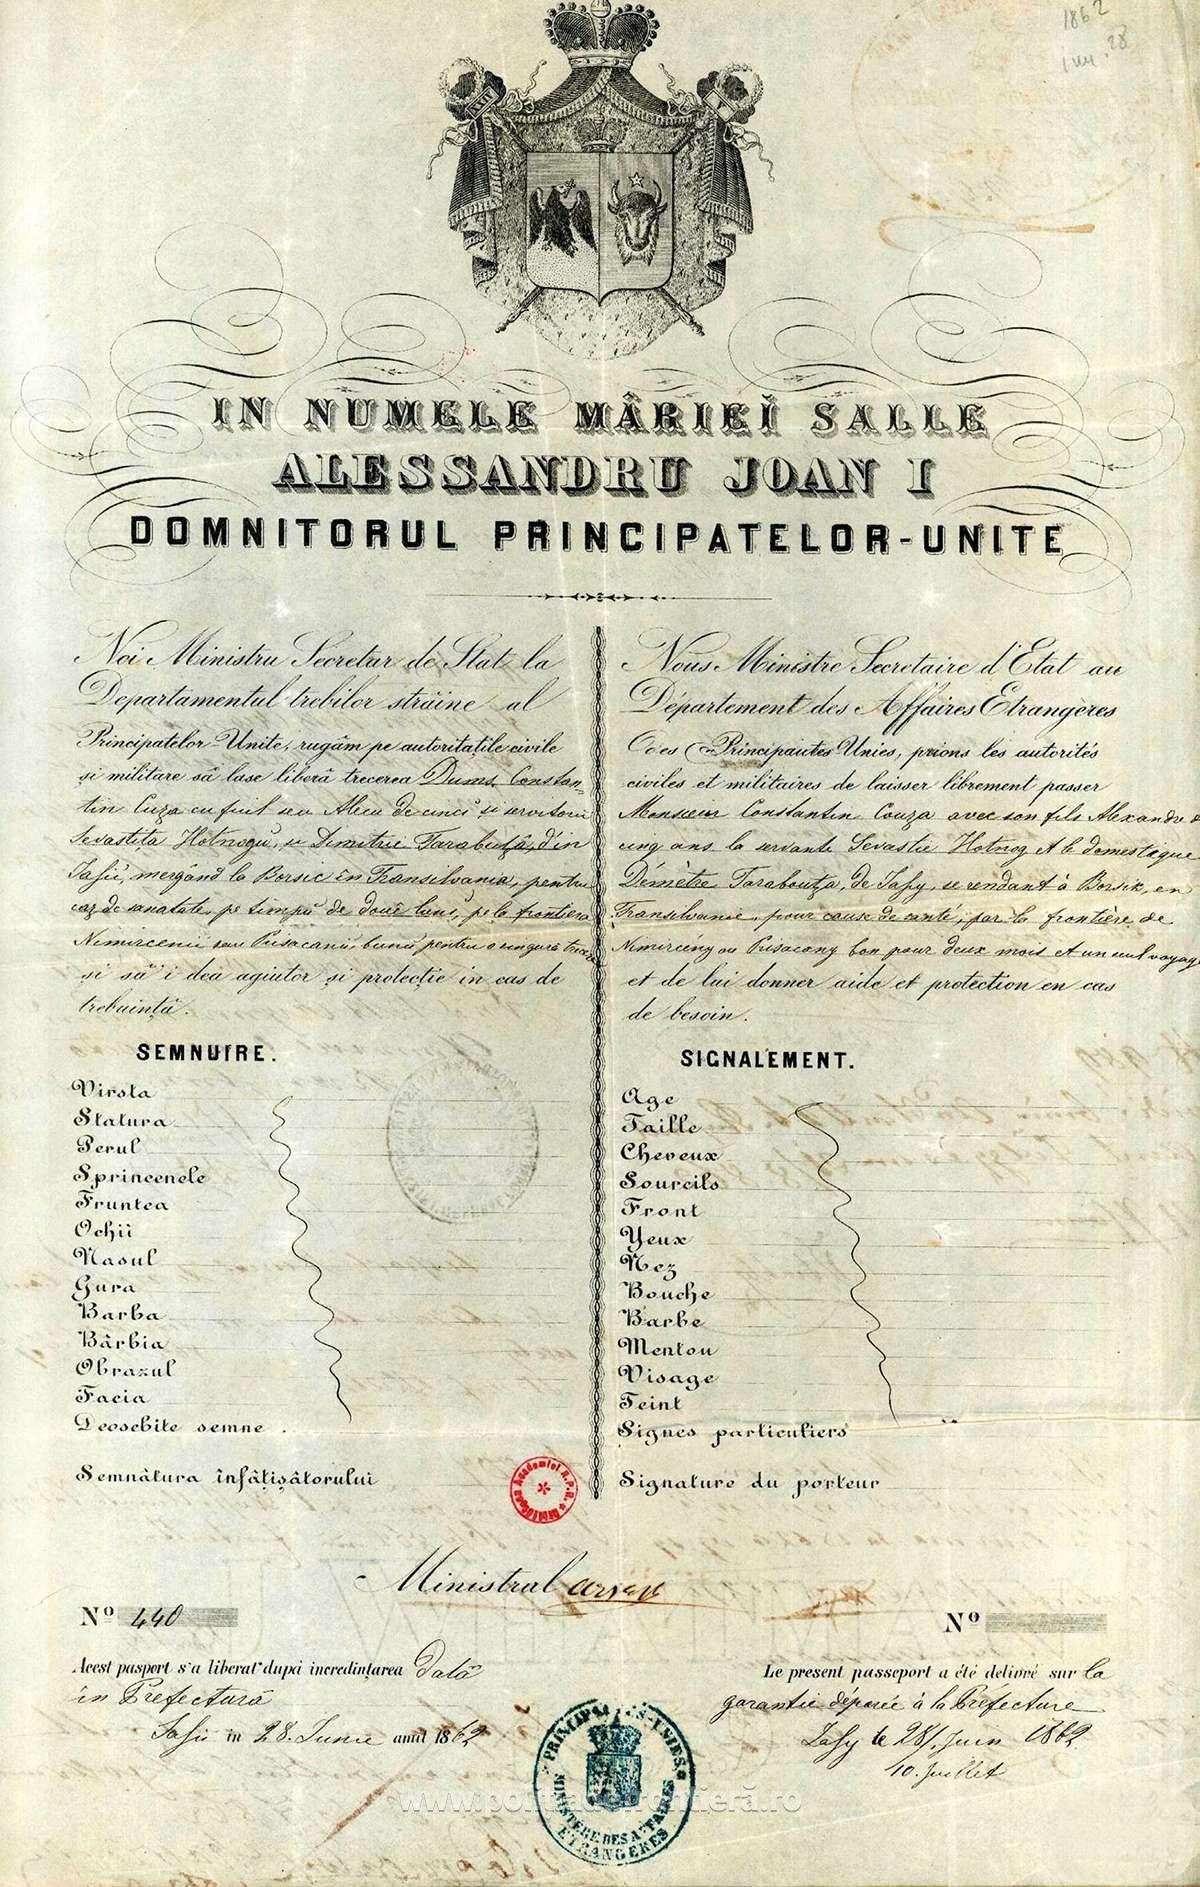 1862
IN NUMELE MÂRIEĬ SALLE
ALESSANDRU JOAN I
DOMNITORUL PRINCIPATELOR-UNITE
Noi Ministru Secretar de Stat la
Departamentul trebilor străine al
Principatelor-Unite, rugăm pe autoritațile civile
și militare să lase liberă trecerea Dums. Constan-
tin Cuza cu fiul seu Alecu de cinci și servitorii
Sevastița Hotnogu, și Dimitrie Tarabuță, din
Iașii, mergând la Borsic în Transilvania, pentru
caz de sanatate, pe timpŭ de douĕ luni, pe la frontiera
Nimircenii sau Prisacanii, bunŭ pentru o singură
și să'i dea agiutor și protecție in cas de
trebuință.
SEMNUIRE.
Virsta
Statura
Perul
Sprincenele
Fruntea
Ochiĭ
Nasul
Gura
Barba
Bârbia
Obrazul
Facia
Deosebite semne
Semnătura înfățișătorului
Nous Ministre Secretaire d'Etat au
Département des Affaires Etrangères
des Principautes Unies, prions les autorités
civiles et militaires de laisser librement passer
Monsieur Constantin Couza avec son fils Alexandre de
cinq ans la servante Sevastie Hotnog et le domestique
Démètre Taraboutza, de Jassy, se rendant à Borsik, en
Transilvanie, pour cause de santé, par la frontière de
Nimircény ou Prisacany bon pour deux mois et un seul voyage
et de lui donner aide et protection en cas
de besoin.
SIGNALEMENT.
Age
Taille
Cheveux
Sourcils
Front
Yeux
Nez
Bouche
Barbe
Menton
Visage
Teint
Signes particuliers
Signature du porteur
Biblioteca Academiei R.P.R.
Ministrul
Nº 440
Acest pasport s'a liberat dupá incredințarea Dată
în Prefectură
Iașii in 28. Iunie anul 1862
Nº
Le present passeport a été delivré sur la
garantie déposée à la Préfecture
Jassy le 28/ Juin 1862
10. Juillet
PRINCIPAUTÉS-UNIES
MINISTÈRE DES AFFAIRES
ETRANGÈRES
www.politiadefrontieră.ro